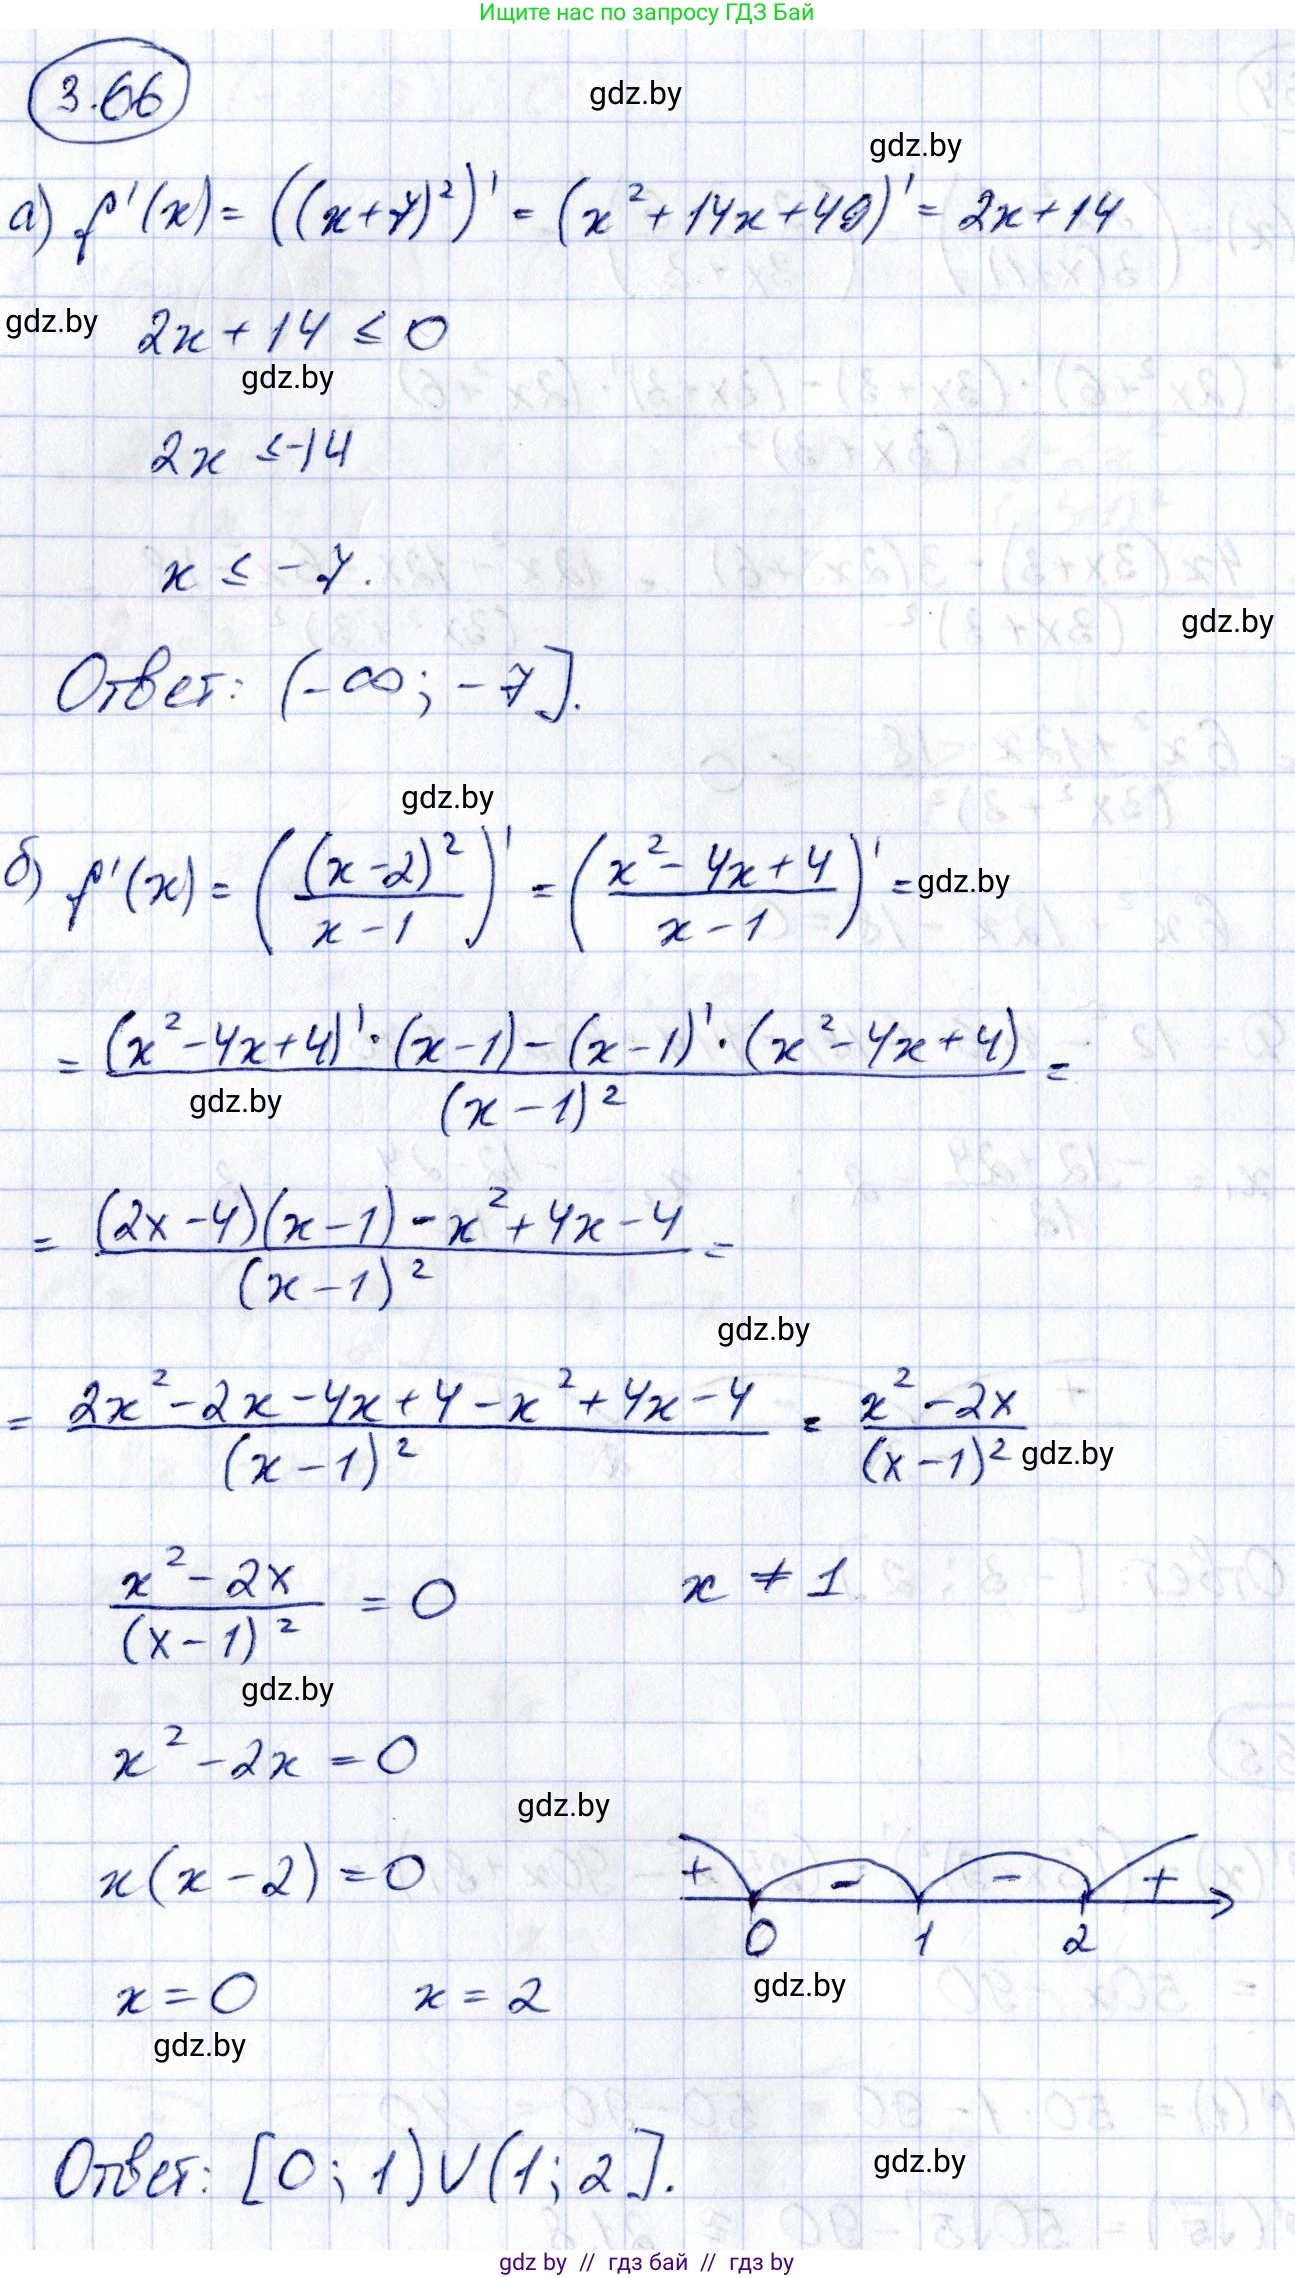 Ищите нас по запросу ГДЗ Бай
3.66
gdz.by
gdz.by
а) f'(x) = ((x+7)²)' = (x²+14x+49)' = 2x+14
gdz.by
2x + 14 ≤ 0
gdz.by
2x ≤ -14
x ≤ -7.
gdz.by
Ответ: (-∞; -7].
gdz.by
б) f'(x) = ((x-2)²/(x-1))' = ((x²-4x+4)/(x-1))' =
gdz.by
= ((x²-4x+4)'·(x-1)-(x-1)'·(x²-4x+4))/(x-1)² =
gdz.by
= ((2x-4)(x-1)-x²+4x-4)/(x-1)² =
gdz.by
= (2x²-2x-4x+4-x²+4x-4)/(x-1)² = (x²-2x)/(x-1)²
gdz.by
(x²-2x)/(x-1)² = 0 x ≠ 1
gdz.by
x²-2x = 0
gdz.by
x(x-2) = 0
+ - - +
0 1 2
gdz.by
x = 0 x = 2
gdz.by
Ответ: [0; 1)∪(1; 2].
gdz.by
gdz by // гдз бай // гдз by